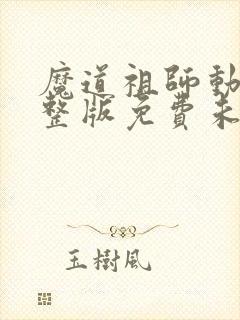 魔道祖師動
整版免費未
玉樹風